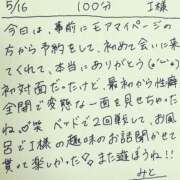 5/16 100分 I様
今日は、事前にモアマイページの
方から予約をして、初めて会いに来
てくれて、本当にありがとう(o´∀`o)
初対面だったけど、最初から性癖
全開で変態な一面を見せちゃった
ね。笑 ベッドで2回戦して、お風
呂でI様の趣味のお話聞かせて
貰って楽しかった♪また遊ぼうね!!
みと